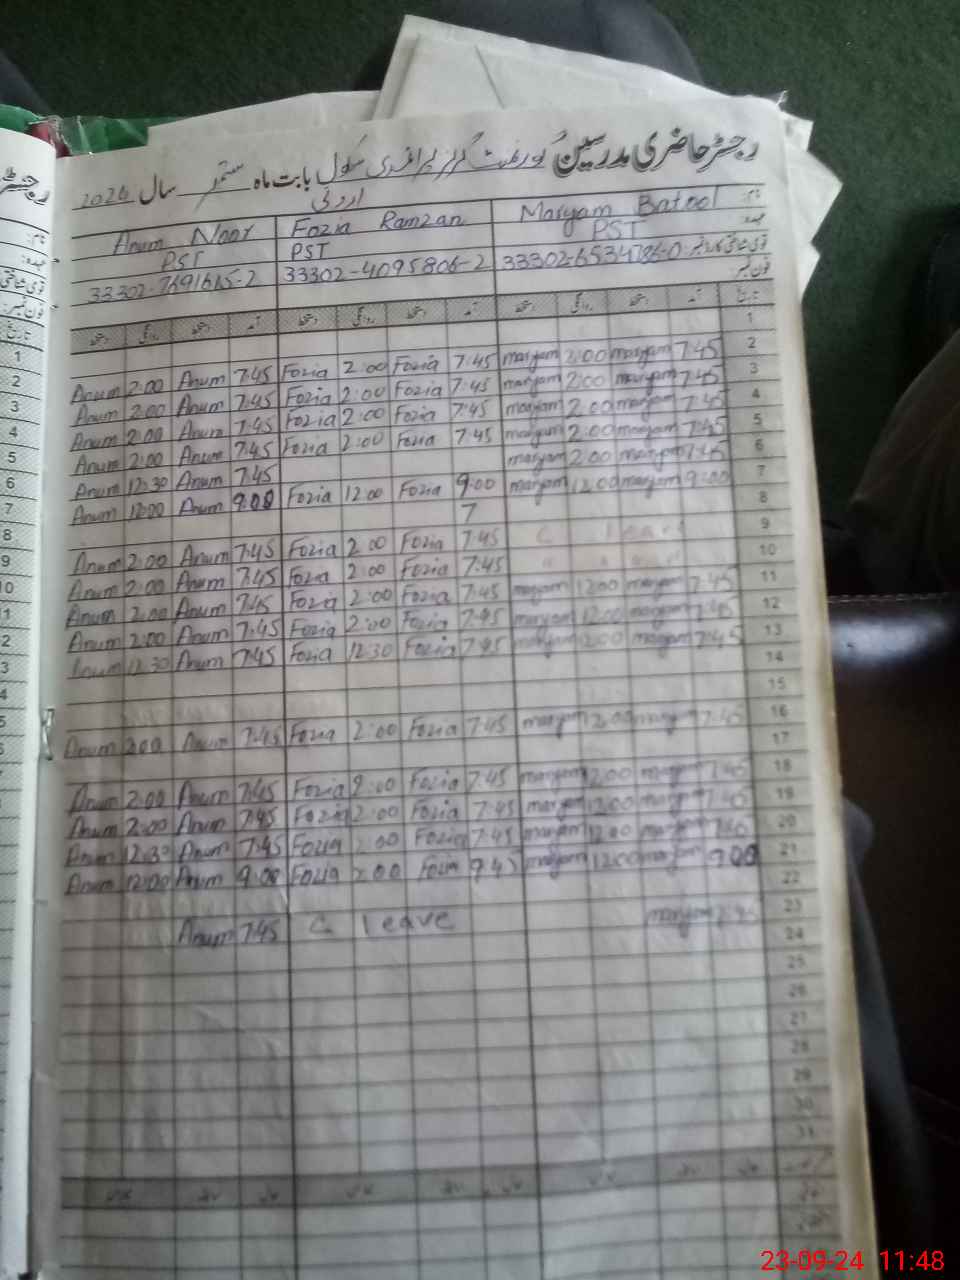 رجسٹر حاضری مدرسین گورنمنٹ گرلز پرائمری سکول بابت ماہ ستمبر سال 2024
Anum Noor Fozia Ramzan Maryam Batool نام:
PST PST PST عہدہ:
33302-7691615-2 33302-4095806-2 33302-6534786-0 قومی شناختی کارڈ نمبر:
فون نمبر:
دستخط روانگی دستخط آمد دستخط روانگی دستخط آمد دستخط روانگی دستخط آمد تاریخ
1
Anum 2:00 Anum 7:45 Fozia 2:00 Fozia 7:45 maryam 2:00 maryam 7:45 2
Anum 2:00 Anum 7:45 Fozia 2:00 Fozia 7:45 maryam 2:00 maryam 7:45 3
Anum 2:00 Anum 7:45 Fozia 2:00 Fozia 7:45 maryam 2:00 maryam 7:45 4
Anum 2:00 Anum 7:45 Fozia 2:00 Fozia 7:45 maryam 2:00 maryam 7:45 5
Anum 12:30 Anum 7:45 maryam 2:00 maryam 7:45 6
Anum 12:00 Anum 9:00 Fozia 12:00 Fozia 9:00 maryam 12:00 maryam 9:00 7
7 8
Anum 2:00 Anum 7:45 Fozia 2:00 Fozia 7:45 C leave 9
Anum 2:00 Anum 7:45 Fozia 2:00 Fozia 7:45 10
Anum 2:00 Anum 7:45 Fozia 2:00 Fozia 7:45 maryam 12:00 maryam 7:45 11
Anum 2:00 Anum 7:45 Fozia 2:00 Fozia 7:45 maryam 12:00 maryam 7:45 12
Anum 12:30 Anum 7:45 Fozia 12:30 Fozia 7:45 maryam maryam 7:45 13
14
15
Anum 2:00 Anum 7:45 Fozia 2:00 Fozia 7:45 maryam 12:00 maryam 7:45 16
17
Anum 2:00 Anum 7:45 Fozia 2:00 Fozia 7:45 maryam 12:00 maryam 7:45 18
Anum 2:00 Anum 7:45 Fozia 2:00 Fozia 7:45 maryam 12:00 maryam 7:45 19
Anum 12:30 Anum 7:45 Fozia 2:00 Fozia 7:45 maryam 12:00 maryam 7:45 20
Anum 12:00 Anum 9:00 Fozia 2:00 Fozia maryam 12:00 maryam 9:00 21
22
Anum 7:45 C leave maryam 7:45 23
24
25
26
27
28
29
30
31
رجسٹر
نام:
عہدہ:
قومی شناختی
فون نمبر:
تاریخ
1
2
3
4
5
6
7
8
9
10
11
23-09-24 11:48